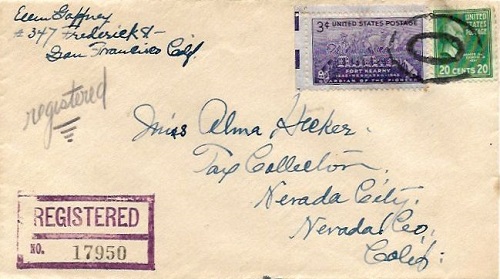 Gaffney
# 347 Frederick St
San Francisco Calif
registered
3¢ UNITED STATES POSTAGE
FORT KEARNY
GUARDIAN OF THE PIONEER
20 CENTS 20
Miss Alma Hecker.
Tax Collector,
Nevada City,
Nevada Co,
Calif.
REGISTERED
NO. 17950